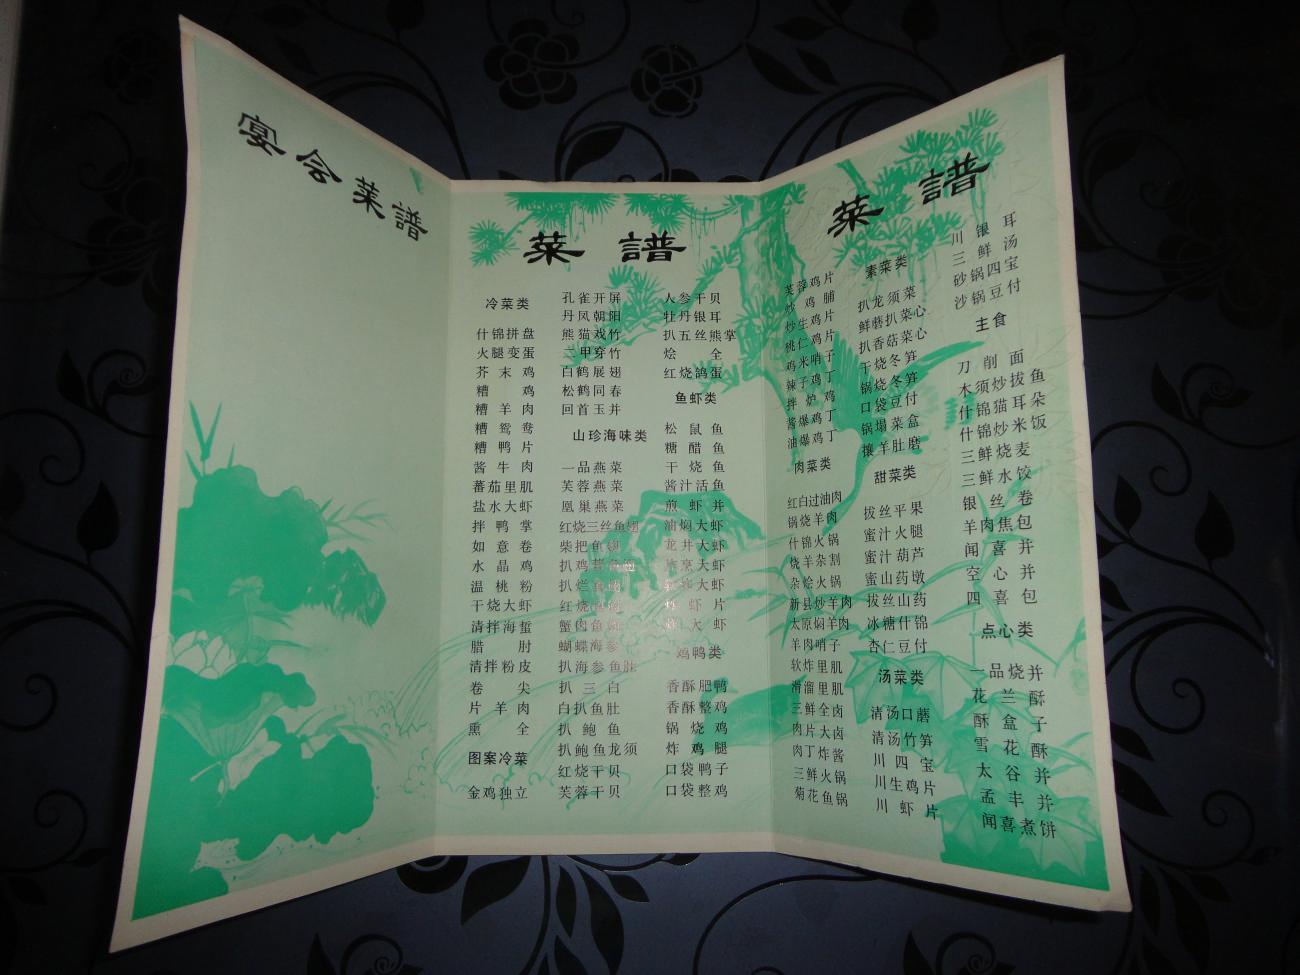 宴会菜譜
菜譜
冷菜类
什锦拼盘
火腿变蛋
芥末鸡
糟鸡
糟羊肉
糟鸳鸯
糟鸭片
酱牛肉
蕃茄里肌
盐水大虾
拌鸭掌
如意卷
水晶鸡
温桃粉
干烧大虾
清拌海蜇
腊肘
清拌粉皮
卷尖
片羊肉
熏全
图案冷菜
金鸡独立
孔雀开屏
丹凤朝阳
熊猫戏竹
二甲穿竹
百鹤展翅
松鹤同春
回首玉并
山珍海味类
一品燕菜
芙蓉燕菜
凰巢燕菜
红烧三丝鱼翅
柴把鱼翅
扒鸡茸鱼翅
扒烂鱼
红烧
蟹肉鱼
蝴蝶海参
扒海参鱼肚
扒三白
白扒鱼肚
扒鲍鱼
扒鲍鱼龙须
红烧干贝
芙蓉干贝
人参干贝
牡丹银耳
扒五丝熊掌
烩全
红烧鸽蛋
鱼虾类
松鼠鱼
糖醋鱼
干烧鱼
酱汁活鱼
煎虾并
油焖大虾
龙井大虾
烹大虾
大虾
炸虾片
炸大虾
鸡鸭类
香酥肥鸭
香酥整鸡
锅烧鸡
炸鸡腿
口袋鸭子
口袋整鸡
菜譜
芙蓉鸡片
炒鸡脯
炒生鸡片
桃仁鸡片
鸡米哨子
辣子鸡丁
拌炉鸡
酱爆鸡丁
油爆鸡丁
肉菜类
红白过油肉
锅烧羊肉
什锦火锅
烧羊杂割
杂烩火锅
新县炒羊肉
太原焖羊肉
羊肉哨子
软炸里肌
滑溜里肌
三鲜全卤
肉片大卤
肉丁炸酱
三鲜火锅
菊花鱼锅
素菜类
扒龙须菜
鲜蘑扒菜心
扒香菇菜心
干烧冬笋
锅烧冬笋
口袋豆付
锅塌菜盒
攘羊肚磨
甜菜类
拔丝平果
蜜汁火腿
蜜汁葫芦
蜜山药墩
拔丝山药
冰糖什锦
杏仁豆付
汤菜类
清汤口蘑
清汤竹笋
川四宝
川生鸡片
川虾片
川银耳
三鲜汤
砂锅四宝
沙锅豆付
主食
刀削面
木须炒拔鱼
什锦猫耳朵
什锦炒米饭
三鲜烧麦
三鲜水饺
银丝卷
羊肉焦包
闻喜并
空心并
四喜包
点心类
一品烧并
花兰酥
酥盒子
雪花酥
太谷并
孟丰并
闻喜煮饼